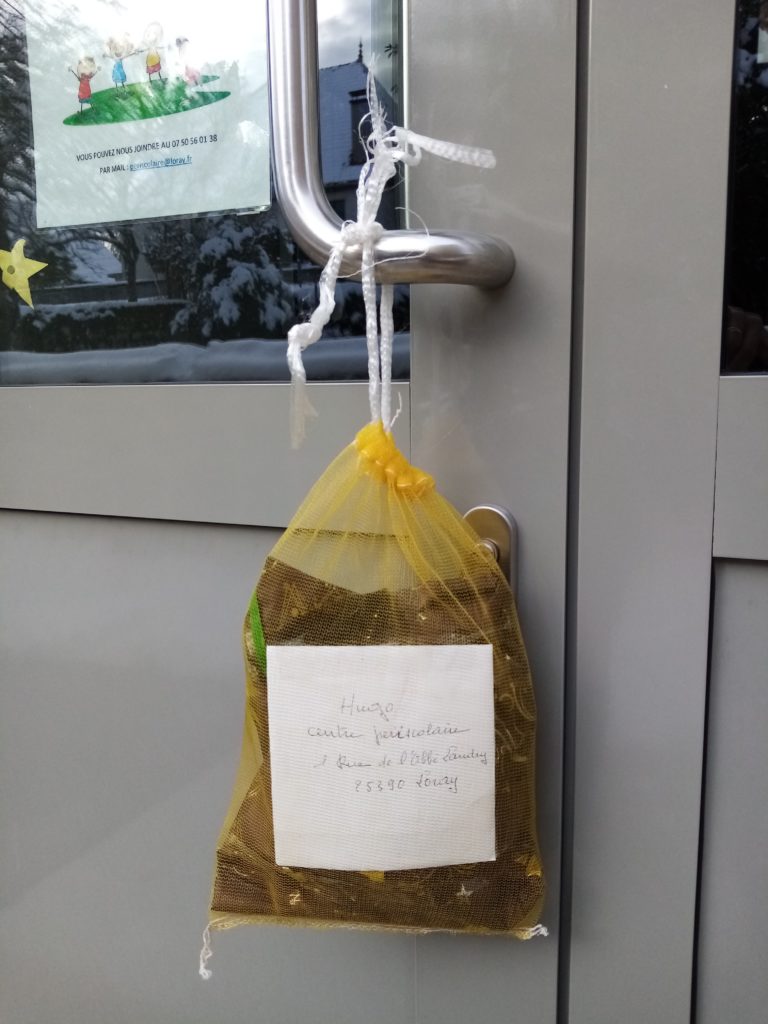 VOUS POUVEZ NOUS JOINDRE AU 07 50 56 01 38
PAR MAIL : periscolaire@loray.fr
Hugo
centre périscolaire
1 Rue de l'Abbé Landry
25390 Loray